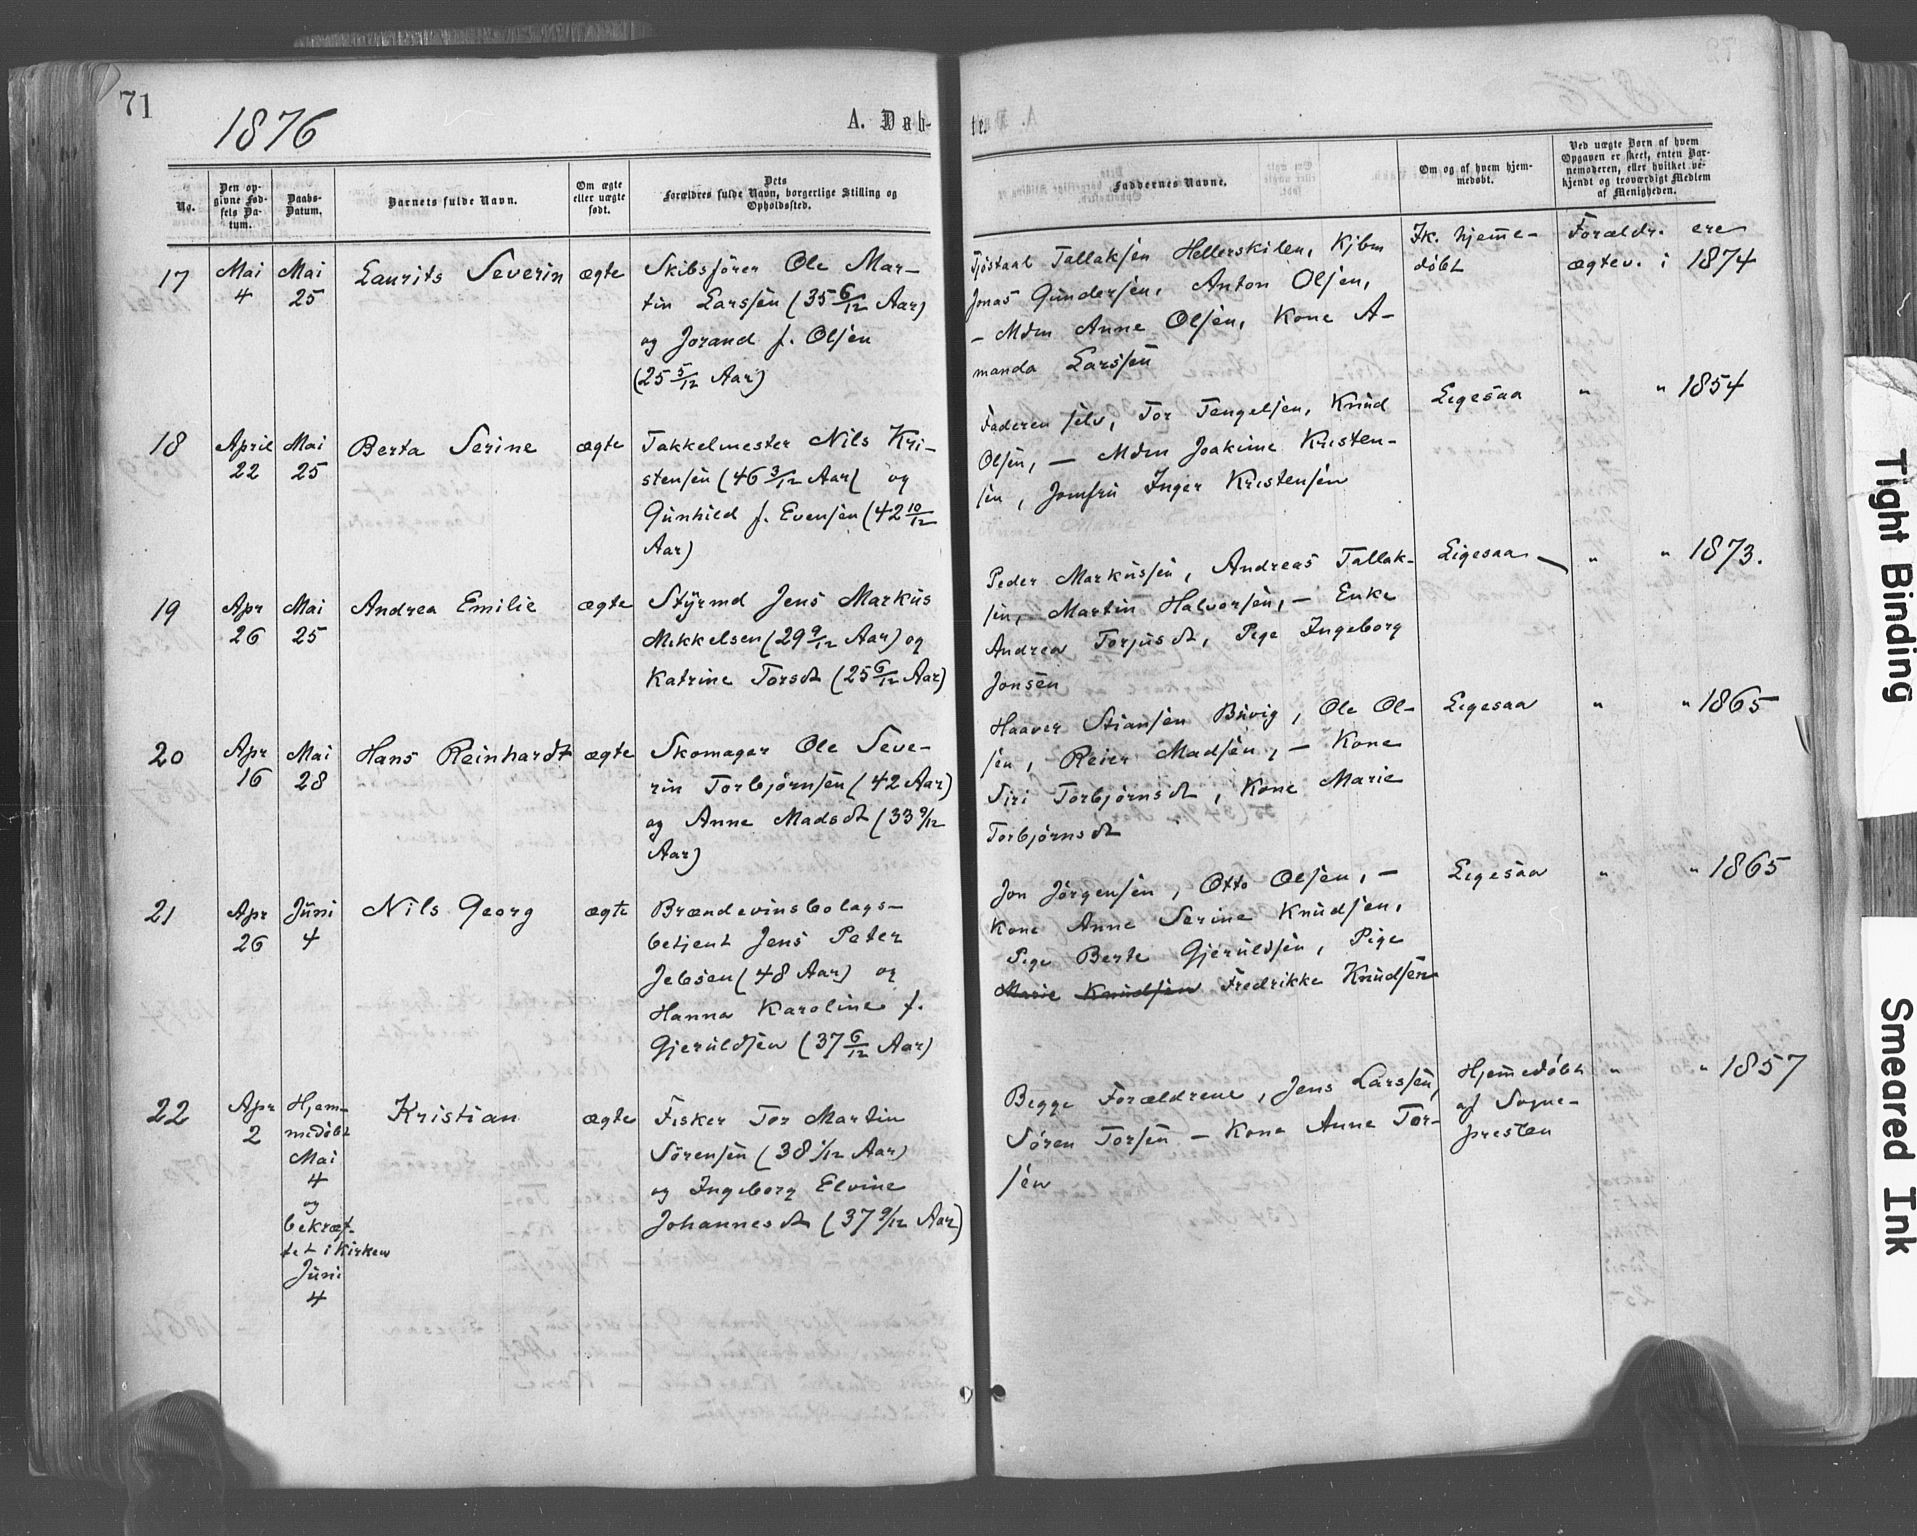 71
1876
A. Døb-
te.
No.
Den op-
givne Fød-
sels Da-
tum.
Daabs-
Datum.
Barnets fulde Navn.
Om ægte
eller uægte
født.
Dets
Forældres fulde Navn, borgerlige Stilling og
Opholdssted.
Faddernes Navne.
Om og af hvem hjem-
medøbt.
Ved uægte Børn af hvem
Opgaven er skeet, enten Bar-
nemoderen, eller hvilket ve-
kjendt og troværdigt Medlem
af Menigheden.
17
Mai
4
Mai
25
Laurits Severin
ægte
Skibsfører Ole Mar-
tin Larssen (35 6/12 Aar)
og Jorand f. Olsen
(25 5/12 Aar)
Tjøstaal Tallaksen Hellerskilen, Kjbm
Jonas Gundersen, Anton Olsen,
- Mdm Anne Olsen, Kone A-
manda Larssen
Ik. hjemme-
døbt
Forældr. ere
ægtev. i 1874
18
April
22
Mai
25
Berta Serine
ægte
Takkelmester Nils Kri-
stensen (46 3/12 Aar( og
Gunhild f. Evensen (42 10/12
Aar)
Faderen selv, Tor Tengelsen, Knud
Olsen, - Mdm Joakime Kristen-
sen, Jomfru Inger Kristensen
Ligesaa
" " 1854
19
Apr
26
Mai
25
Andrea Emilie
ægte
Styrmd Jens Markus
Mikkelsen (29 9/12 Aar) og
Katrine Torsdt (25 6/12 Aar)
Peder Markussen, Andreas Tallak-
sen, Martin Halvorsen, - Enke
Andrea Torjusdt, Pige Ingeborg
Jonsen
Ligesaa
" " 1873.
20
Apr
16
Mai
28
Hans Reinhardt
ægte
Skomager Ole Seve-
rin Torbjørnsen (42 Aar)
og Anne Madsdt (33 9/12
Aar)
Haaver Stiansen Buvig, Ole Ol-
sen, Reier Madsen, - Kone
Siri Torbjørnsdt, Kone Marie
Torbjørnsdt
Ligesaa
" " 1865
21
Apr
26
Juni
4
Nils Georg
ægte
Brændevinsbolags-
betjent Jens Peter
Jebsen (48 Aar) og
Hanna Karoline f.
Gjeruldsen (37 6/12 Aar)
Jon Jørgensen, Otto Olsen, -
Kone Anne Serine Knudsen,
Pige Berte Gjeruldsen, Pige
Marie Knudsen Fredrikke Knudsen
Ligesaa
" " 1865
22
Apr
2
Hjem-
medøbt
Mai
4
og
bekræf-
tet i Kirken
Juni
4
Kristian
ægte
Fisker Tor Martin
Sørensen (38 1/12 Aar)
og Ingeborg Elvine
Johannesdt (37 9/12 Aar)
Begge Forældrene, Jens Larssen,
Søren Torsen - Kone Anne Tor-
sen
Hjemmedøbt
af Sogne-
presten
" " 1857
Tight Binding
Smeared Ink